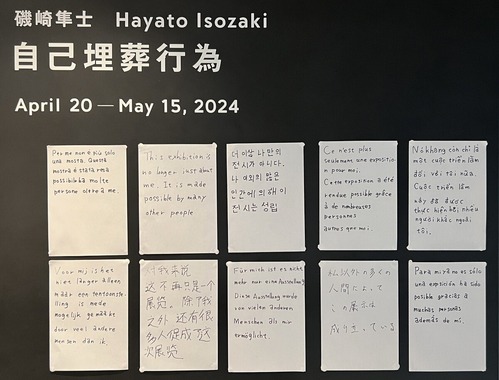 磯崎隼士 Hayato Isozaki
自己埋葬行為
April 20 — May 15, 2024
Per me non è più solo
una mostra. Questa
mostra è stata resa
possibile da molte
persone oltre a me.
This exhibition is
no longer just about
me. It is made
possible by many
other people
더 이상 나만의
전시가 아니다.
나 이외의 많은
인간에 의해 이
전시는 성립
Ce n'est plus
seulement une exposition
pour moi.
Cette exposition a été
rendue possible grâce
à de nombreuses
personnes
autres que moi.
Nó không còn chỉ là
một cuộc triển lãm
đối với tôi nữa.
Cuộc triển lãm
này đã được
thực hiện bởi nhiều
người khác ngoài
tôi.
Voor mij is het
niet langer alleen
maar een tentoonstel-
ling is mede
mogelijk gemaakt
door veel andere
mensen dan ik.
对我来说
这不再只是一个
展览。除了我
之外 还有很
多人促成了这
次展览
Für mich ist es nicht
mehr nur eine Ausstellung
Diese Ausstellung wurde
von vielen anderen
Menschen als mir
ermöglicht.
私以外の多くの
人間によって
この展示は
成り立っている
Para mi ya no es sólo
una exposición ha sido
posible gracias a
muchas personas
además de mi.